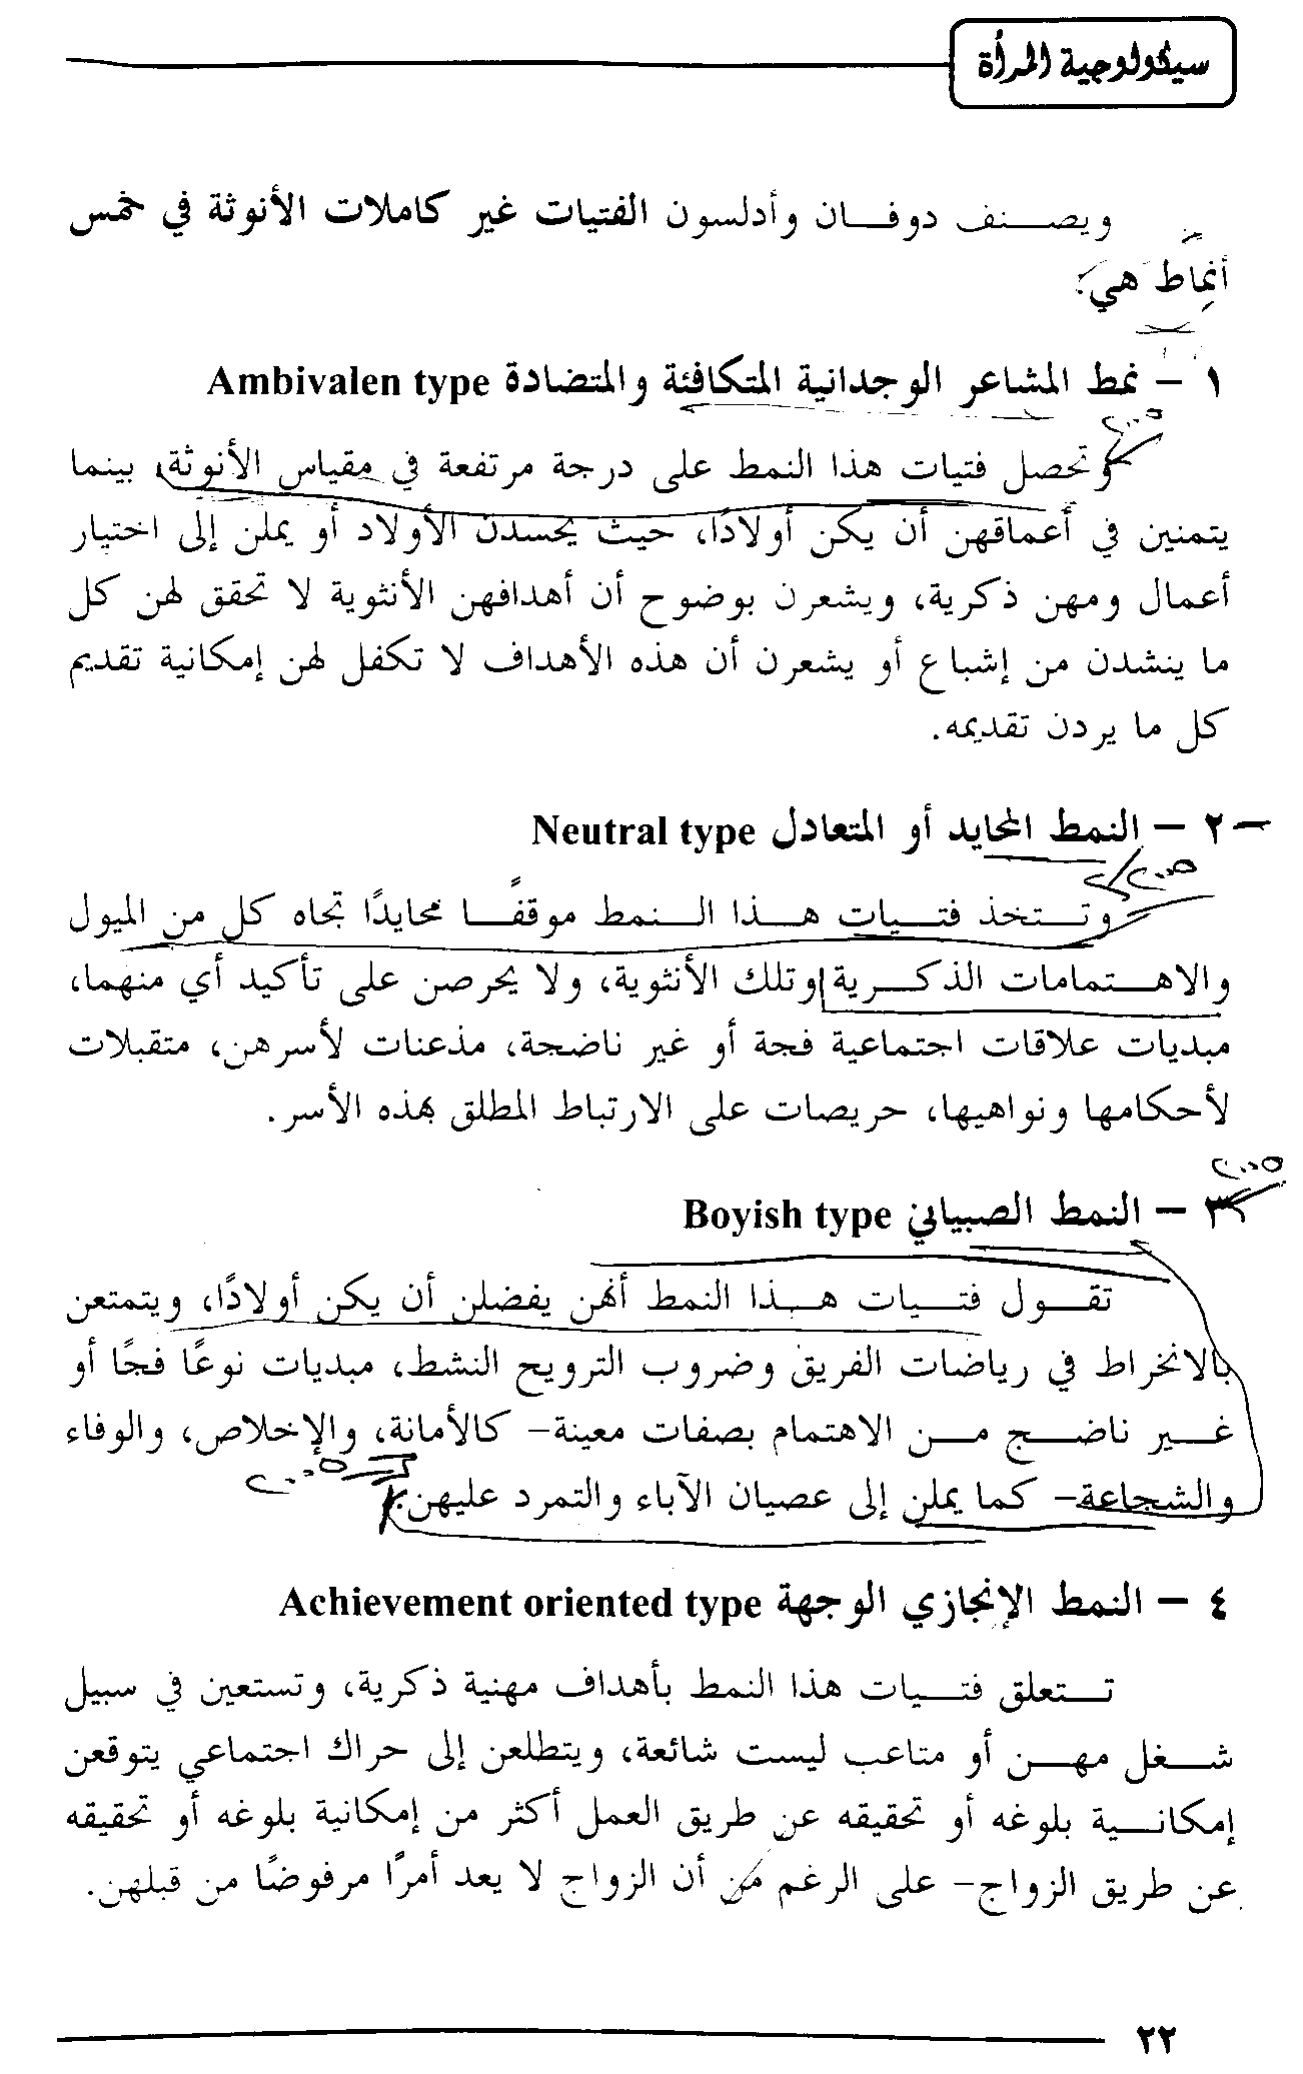 سيكولوجية المرأة
ويصنف دوفان وأدلسون الفتيات غير كاملات الأنوثة في خمس
أنماط هي:
١ – نمط المشاعر الوجدانية المتكافئة والمتضادة Ambivalen type
٢٠٠٥
وتحصل فتيات هذا النمط على درجة مرتفعة في مقياس الأنوثة، بينما
يتمنين في أعماقهن أن يكن أولادًا، حيث يحسدن الأولاد أو يملن إلى اختيار
أعمال ومهن ذكرية، ويشعرن بوضوح أن أهدافهن الأنثوية لا تحقق لهن كل
ما ينشدن من إشباع أو يشعرن أن هذه الأهداف لا تكفل لهن إمكانية تقديم
كل ما يردن تقديمه.
٢ – النمط المحايد أو المتعادل Neutral type
٢٠٠٥
وتتخذ فتيات هذا النمط موقفًا محايدًا تجاه كل من الميول
والاهتمامات الذكرية وتلك الأنثوية، ولا يحرصن على تأكيد أي منهما،
مبديات علاقات اجتماعية فجة أو غير ناضجة، مذعنات لأسرهن، متقبلات
لأحكامها ونواهيها، حريصات على الارتباط المطلق بهذه الأسر.
٢٠٠٥
٣ – النمط الصبياني Boyish type
تقول فتيات هذا النمط أنهن يفضلن أن يكن أولادًا، ويتمتعن
بالانخراط في رياضات الفريق وضروب الترويح النشط، مبديات نوعًا فجًا أو
غير ناضج من الاهتمام بصفات معينة– كالأمانة، والإخلاص، والوفاء
٢٠٠٥
والشجاعة– كما يملن إلى عصيان الآباء والتمرد عليهن.
٤ – النمط الإنجازي الوجهة Achievement oriented type
تتعلق فتيات هذا النمط بأهداف مهنية ذكرية، وتستعين في سبيل
شغل مهن أو متاعب ليست شائعة، ويتطلعن إلى حراك اجتماعي يتوقعن
إمكانية بلوغه أو تحقيقه عن طريق العمل أكثر من إمكانية بلوغه أو تحقيقه
عن طريق الزواج– على الرغم من أن الزواج لا يعد أمرًا مرفوضًا من قبلهن.
٢٢